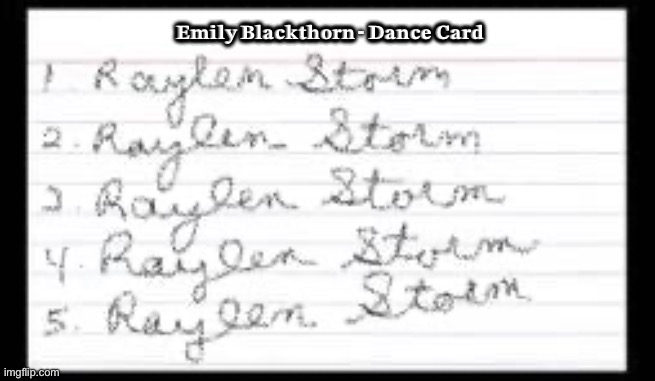 Emily Blackthorn - Dance Card
1. Raylen Storm
2. Raylen Storm
3. Raylen Storm
4. Raylen Storm
5. Raylen Storm
imgflip.com